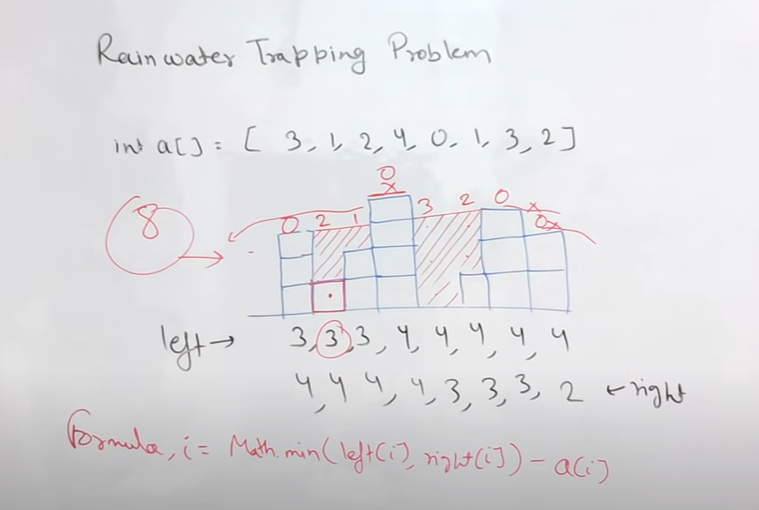 Rainwater Trapping Problem
int a[] = [ 3, 1, 2, 4, 0, 1, 3, 2 ]
8
0 2 1 0 3 2 0 0
left → 3, 3, 3, 4, 4, 4, 4, 4
4, 4, 4, 4, 3, 3, 3, 2 ← right
Formula, i = Math.min(left[i], right[i]) - a[i]